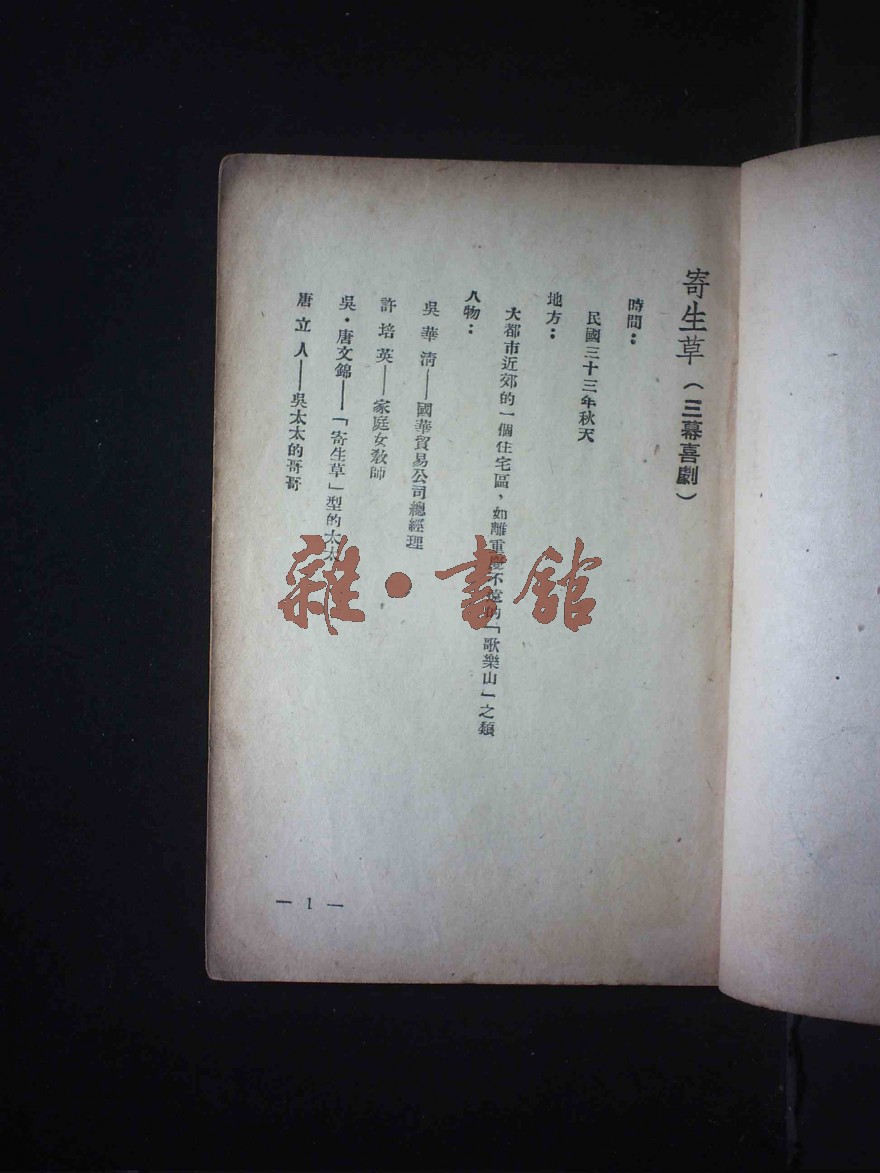 寄生草（三幕喜劇）
時間：
民國三十三年秋天
地方：
大都市近郊的一個住宅區，如離重慶不遠的「歌樂山」之類
人物：
吳華淸——國華貿易公司總經理
許培英——家庭女教師
吳·唐文錦——「寄生草」型的太太
唐立人——吳太太的哥哥
— 1 —
雜·書館